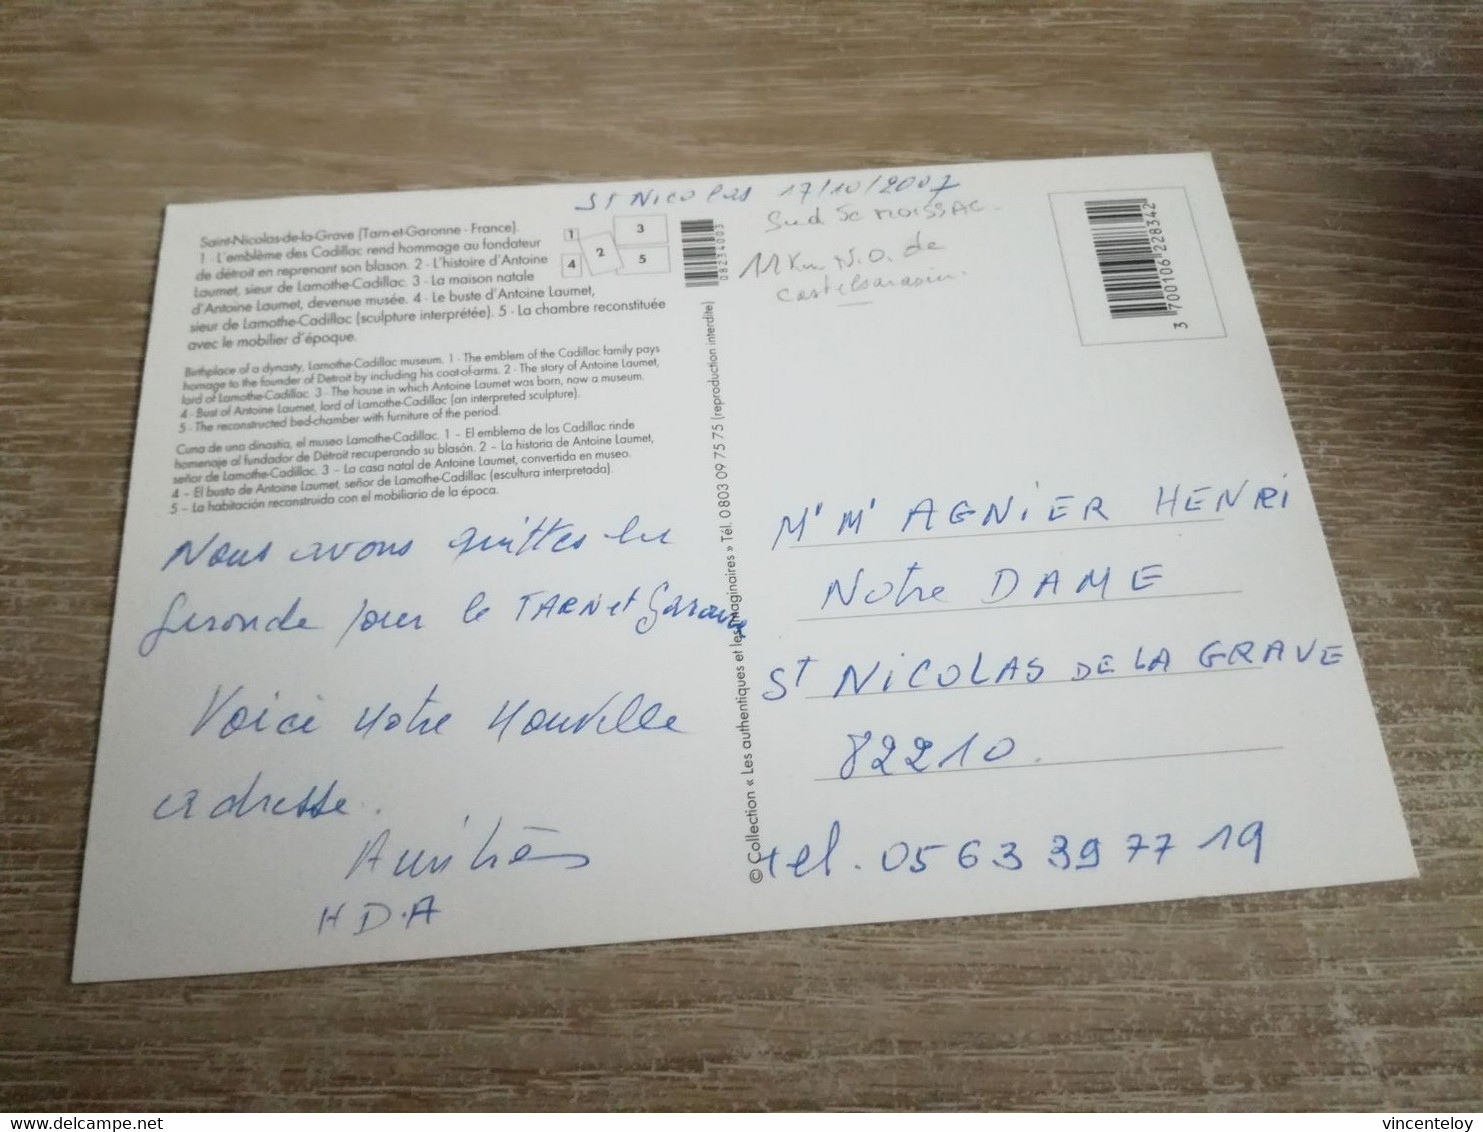 St NICOLAS 17/10/2007
Sud MOISSAC
11 Km N.O. de
Castelsarrasin.
Saint-Nicolas-de-la-Grave (Tarn-et-Garonne - France).
1 - L'emblème des Cadillac rend hommage au fondateur
de détroit en reprenant son blason. 2 - L'histoire d'Antoine
Laumet, sieur de Lamothe-Cadillac. 3 - La maison natale
d'Antoine Laumet, devenue musée. 4 - Le buste d'Antoine Laumet,
sieur de Lamothe-Cadillac (sculpture interprétée). 5 - La chambre reconstituée
avec le mobilier d'époque.
1
2
3
4
5
Birthplace of a dynasty, Lamothe-Cadillac museum. 1 - The emblem of the Cadillac family pays
homage to the founder of Detroit by including his coat-of-arms. 2 - The story of Antoine Laumet,
lord of Lamothe-Cadillac. 3 - The house in which Antoine Laumet was born, now a museum.
4 - Bust of Antoine Laumet, lord of Lamothe-Cadillac (an interpreted sculpture).
5 - The reconstructed bed-chamber with furniture of the period.
Cuna de una dinastia, el museo Lamothe-Cadillac. 1 - El emblema de los Cadillac rinde
homenaje al fundador de Détroit recuperando su blasón. 2 - La historia de Antoine Laumet,
señor de Lamothe-Cadillac. 3 - La casa natal de Antoine Laumet, convertida en museo.
4 - El busto de Antoine Laumet, señor de Lamothe-Cadillac (escultura interpretada).
5 - La habitación reconstruida con el mobiliario de la época.
Nous avons quittes la
Gironde pour le TARN et Garonne
Voici notre nouvelle
adresse.
Amitiés
H D.A
08234003
© Collection « Les authentiques et les imaginaires » Tél. 0 803 09 75 75 (reproduction interdite)
3 700106 228342
Mr Mr AGNIER HENRI
Notre DAME
St NICOLAS DE LA GRAVE
82210.
tel. 05 63 39 77 19
vincenteloy